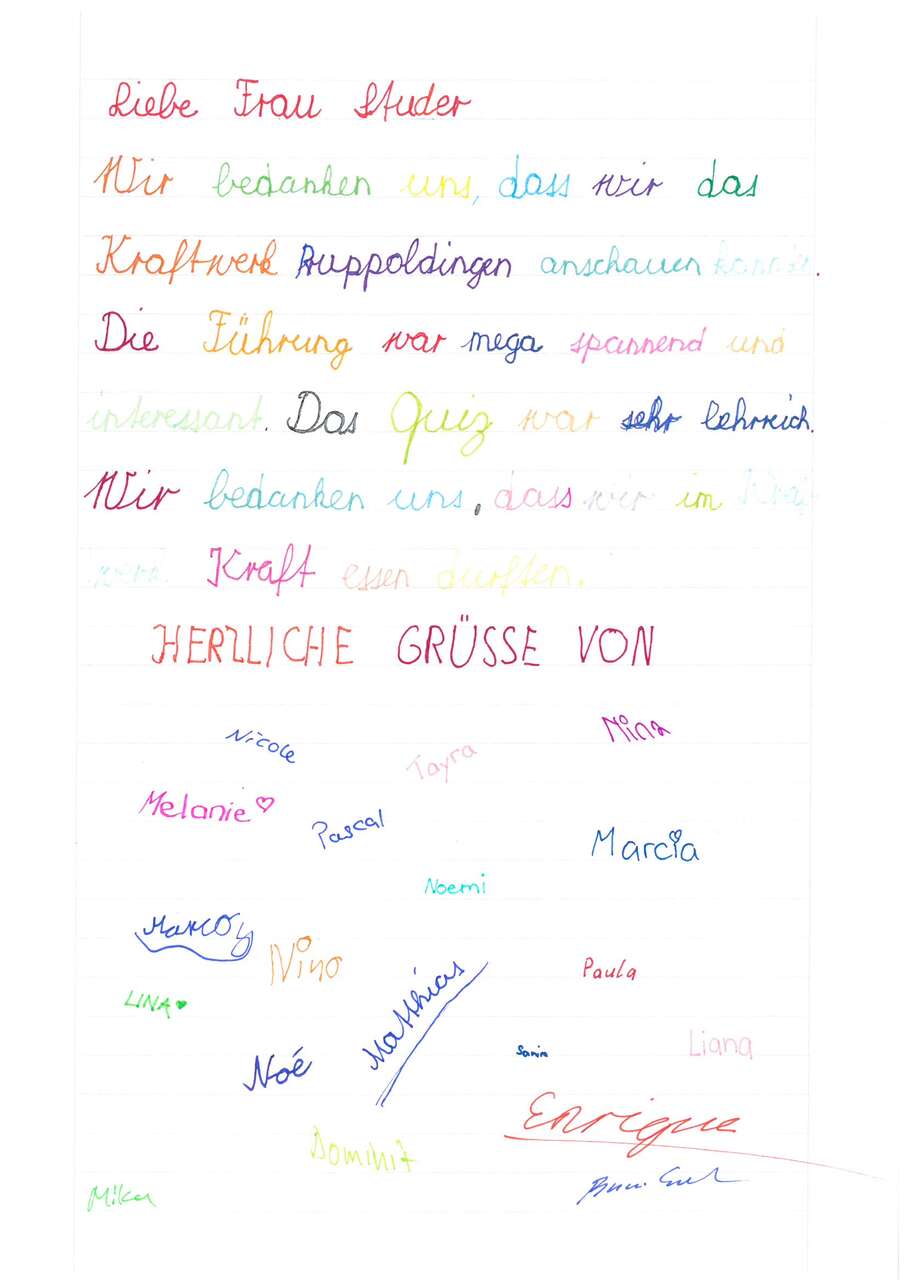 Liebe Frau Studer
Wir bedanken uns, dass wir das
Kraftwerk Ruppoldingen anschauen
Die Führung war mega spannend und
interessant. Das Quiz war sehr lehrreich.
Wir bedanken uns, dass wir im Kraft
werk. Kraft essen durften.
HERZLICHE GRÜSSE VON
Nicole
Tayra
Nina
Melanie ♡
Pascal
Marcia
Noemi
Nino
Matthias
Paula
LINA ♥
Noé
Samin
Liana
Enrique